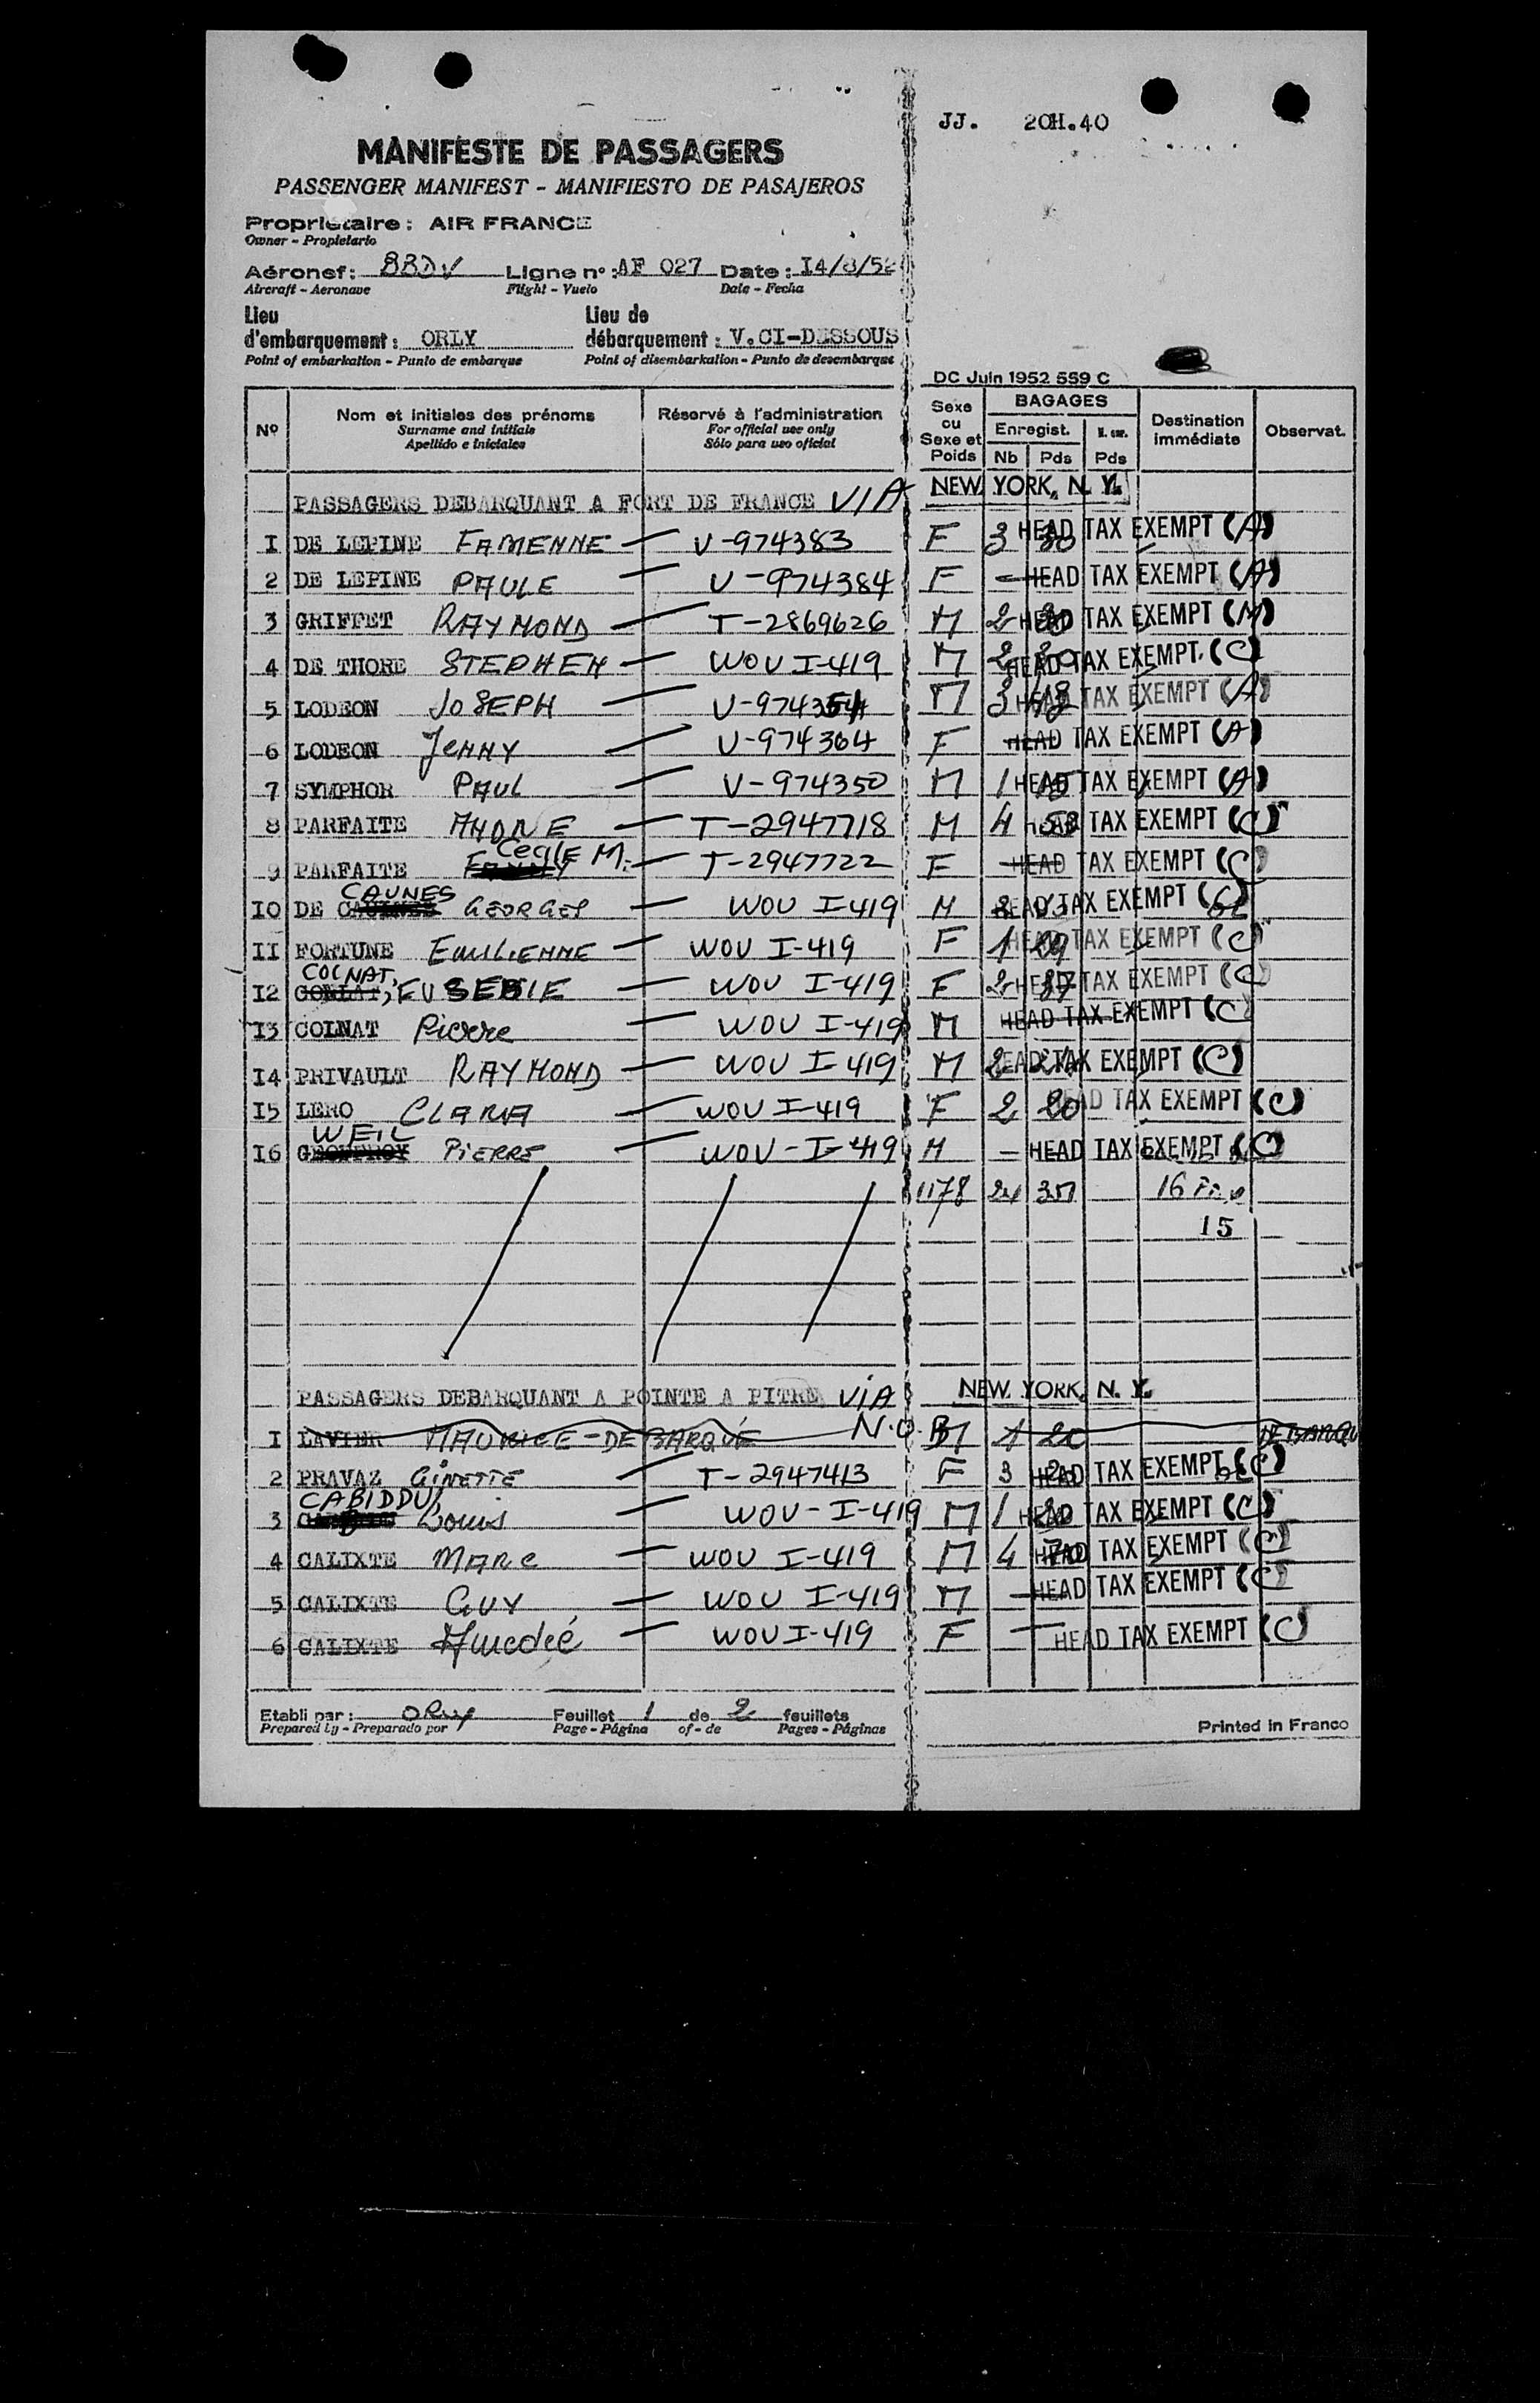 JJ. 20H.40
MANIFESTE DE PASSAGERS
PASSENGER MANIFEST - MANIFIESTO DE PASAJEROS
Propriétaire : AIR FRANCE
Owner - Propietario
Aéronef : BBDV Ligne n° : AF 027 Date : I4/8/52
Aircraft - Aeronave Flight - Vuelo Date - Fecha
Lieu d'embarquement : ORLY Lieu de débarquement : V.CI-DESSOUS
Point of embarkation - Punto de embarque Point of disembarkation - Punto de desembarque
DC Juin 1952 559 C
Nº Nom et initiales des prénoms Réservé à l'administration Sexe ou Sexe et Poids BAGAGES Destination immédiate Observat.
Surname and initials For official use only Enregist.
Apellido e iniciales Sólo para uso oficial Nb Pds Pds
PASSAGERS DEBARQUANT A FORT DE FRANCE VIA NEW YORK, N. Y.
I DE LEPINE V-974383 F 3 HEAD TAX EXEMPT (A)
2 DE LEPINE PAULE V-974384 F - HEAD TAX EXEMPT (A)
3 GRIFFET RAYMOND T-2869626 M 2 HEAD TAX EXEMPT (M)
4 DE THORE STEPHEN WOV I-419 M 2 HEAD TAX EXEMPT (C)
5 LODEON JOSEPH M 3 HEAD TAX EXEMPT (A)
6 LODEON JENNY V-974364 F HEAD TAX EXEMPT (A)
7 SYMPHOR PAUL V-974350 M 1 HEAD TAX EXEMPT (A)
8 PARFAITE ANDRE T-2947718 M 4 HEAD TAX EXEMPT (C)
9 PARFAITE Cecile M. T-2947722 F HEAD TAX EXEMPT (C)
IO DE CAUNES GEORGES WOV I-419 M HEAD TAX EXEMPT (C)
II FORTUNE EMILIENNE WOV I-419 F 1 HEAD TAX EXEMPT (C)
I2 COLNAT, EUSEBIE WOV I-419 F 2 HEAD TAX EXEMPT (C)
I3 COLNAT Pierre WOV I-419 M HEAD TAX EXEMPT (C)
I4 PRIVAULT RAYMOND WOV I-419 M 2 HEAD TAX EXEMPT (C)
I5 LERO CLARA WOV I-419 F 2 20 HEAD TAX EXEMPT (C)
I6 WEIL PIERRE WOV-I-419 M - HEAD TAX EXEMPT (C)
1178 24 16
15
PASSAGERS DEBARQUANT A POINTE A PITRE VIA NEW YORK, N. Y.
I LAVIER MAURICE-DEBARQUÉ N.O.B M 1 20 DEBARQU
2 PRAVAZ GINETTE T-2947413 F 3 HEAD TAX EXEMPT (C)
3 CABIDDU Louis WOV-I-419 M 1 HEAD TAX EXEMPT (C)
4 CALIXTE MARC WOV I-419 M 4 HEAD TAX EXEMPT (C)
5 CALIXTE GUY WOV I-419 M - HEAD TAX EXEMPT (C)
6 CALIXTE Amedée WOV I-419 F - HEAD TAX EXEMPT (C)
Etabli par : ORLY Feuillet 1 de 2 feuillets
Prepared by - Preparado por Page - Página of - de Pages - Páginas
Printed in France